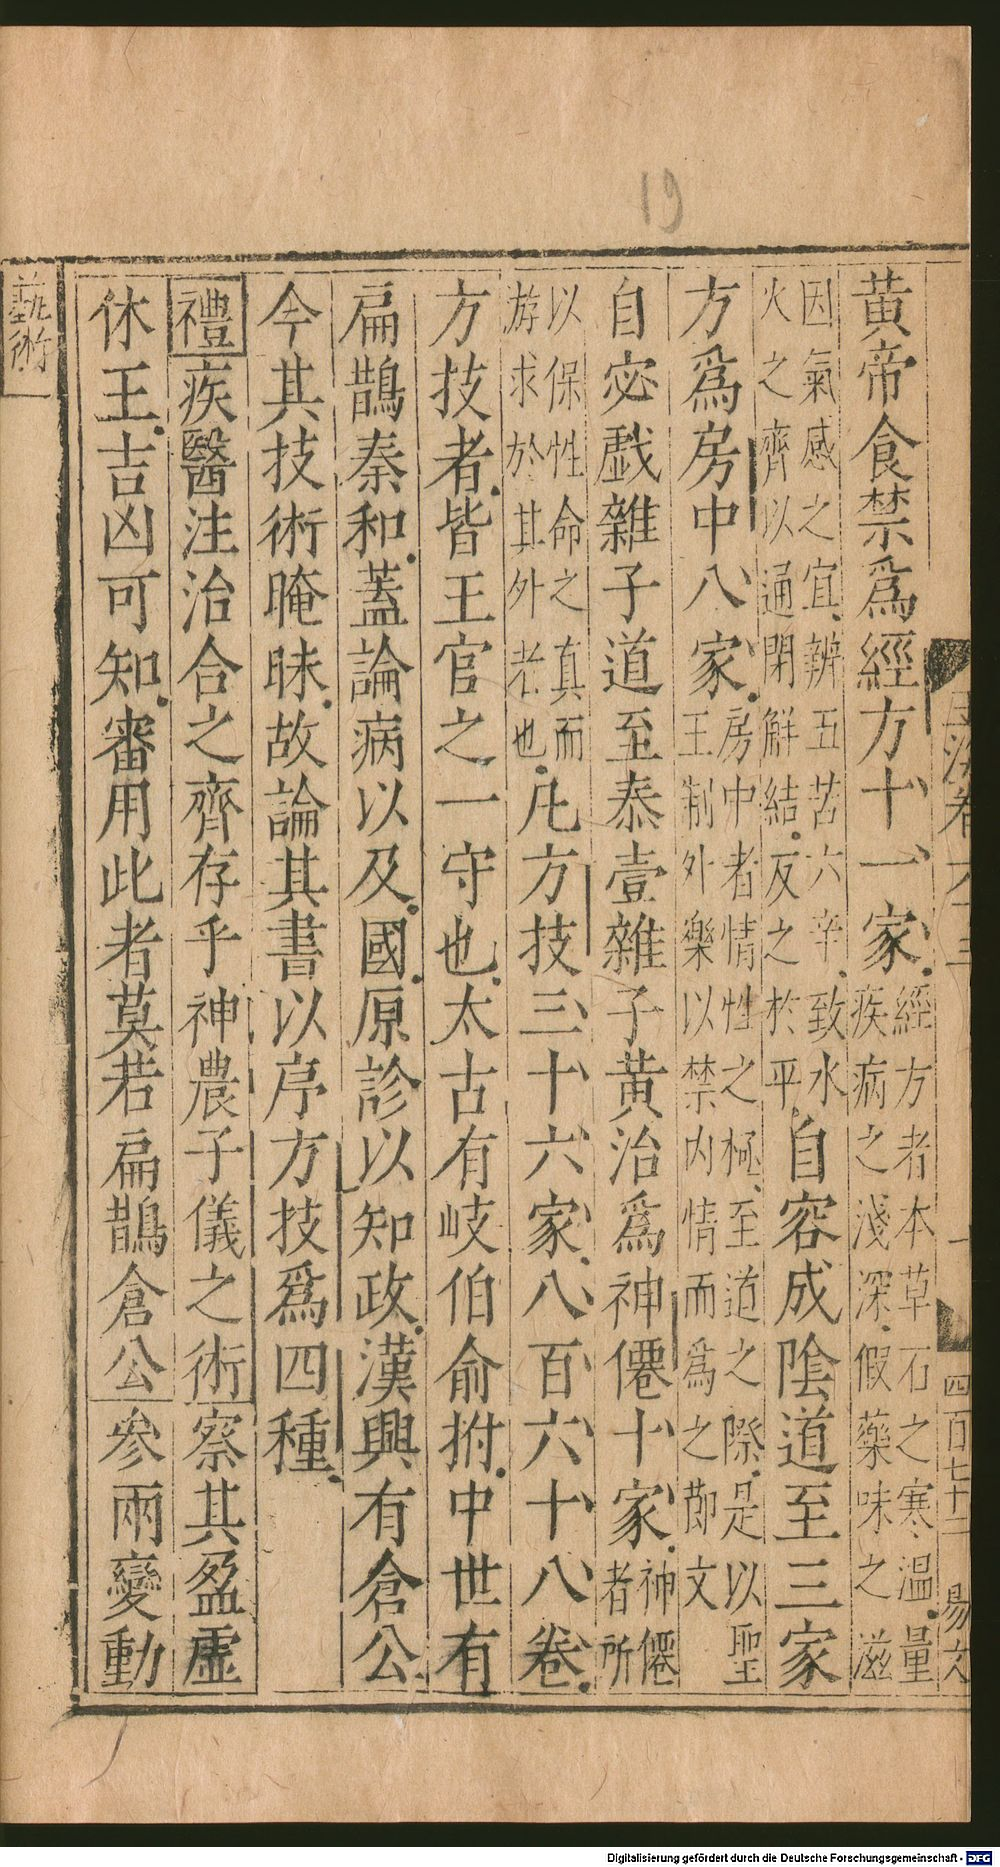 19
黄帝食禁爲經方十一家經方者本草石之寒温量
疾病之淺深假藥味之滋
因氣感之宜辨五苦六辛致水
火之齊以通閉解結反之於平自容成陰道至三家
方爲房中八家房中者情性之極至道之際是以聖
王制外樂以禁内情而爲之節文
自宓戯雜子道至泰壹雜子黄治爲神僊十家神僊
者所
以保性命之真而
游求於其外者也凡方技三十六家八百六十八卷
方技者皆王官之一守也太古有岐伯俞拊中世有
扁鵲秦和蓋論病以及國原診以知政漢興有倉公
今其技術晻昧故論其書以序方技爲四種
禮疾醫注治合之齊存乎神農子儀之術察其盈虚
休王吉凶可知審用此者莫若扁鵲倉公參兩變動
藝術
四百七十二
易文
Digitalisierung gefördert durch die Deutsche Forschungsgemeinschaft - DFG